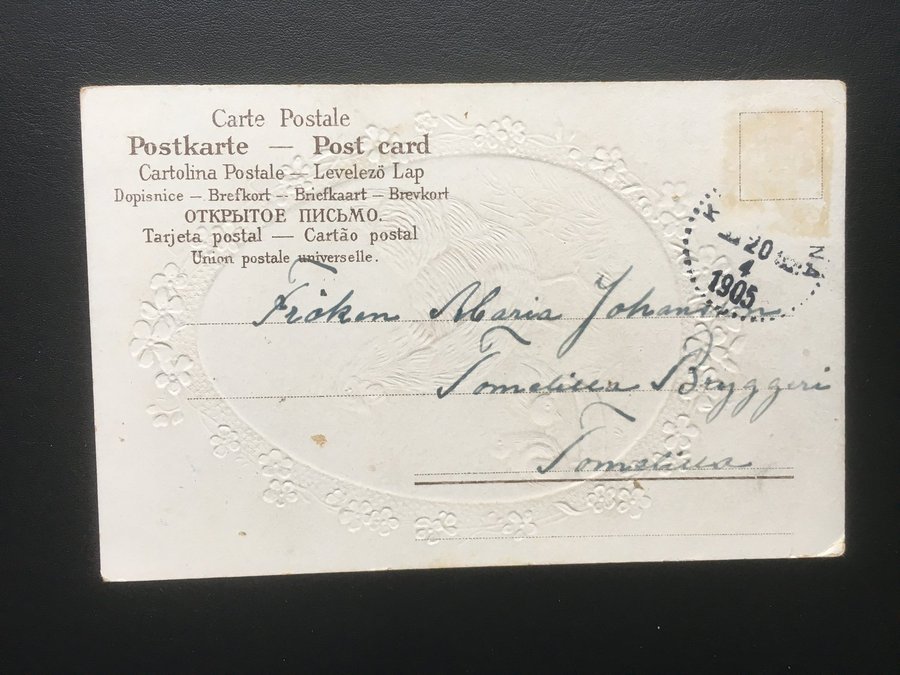 Carte Postale
Postkarte — Post card
Cartolina Postale — Levelezö Lap
Dopisnice — Brefkort — Briefkaart — Brevkort
ОТКРЫТОЕ ПИСЬМО.
Tarjeta postal — Cartão postal
Union postale universelle.
K N A
20
4
1905
Fröken Maria Johansson
Tomelilla Bryggeri
Tomelilla